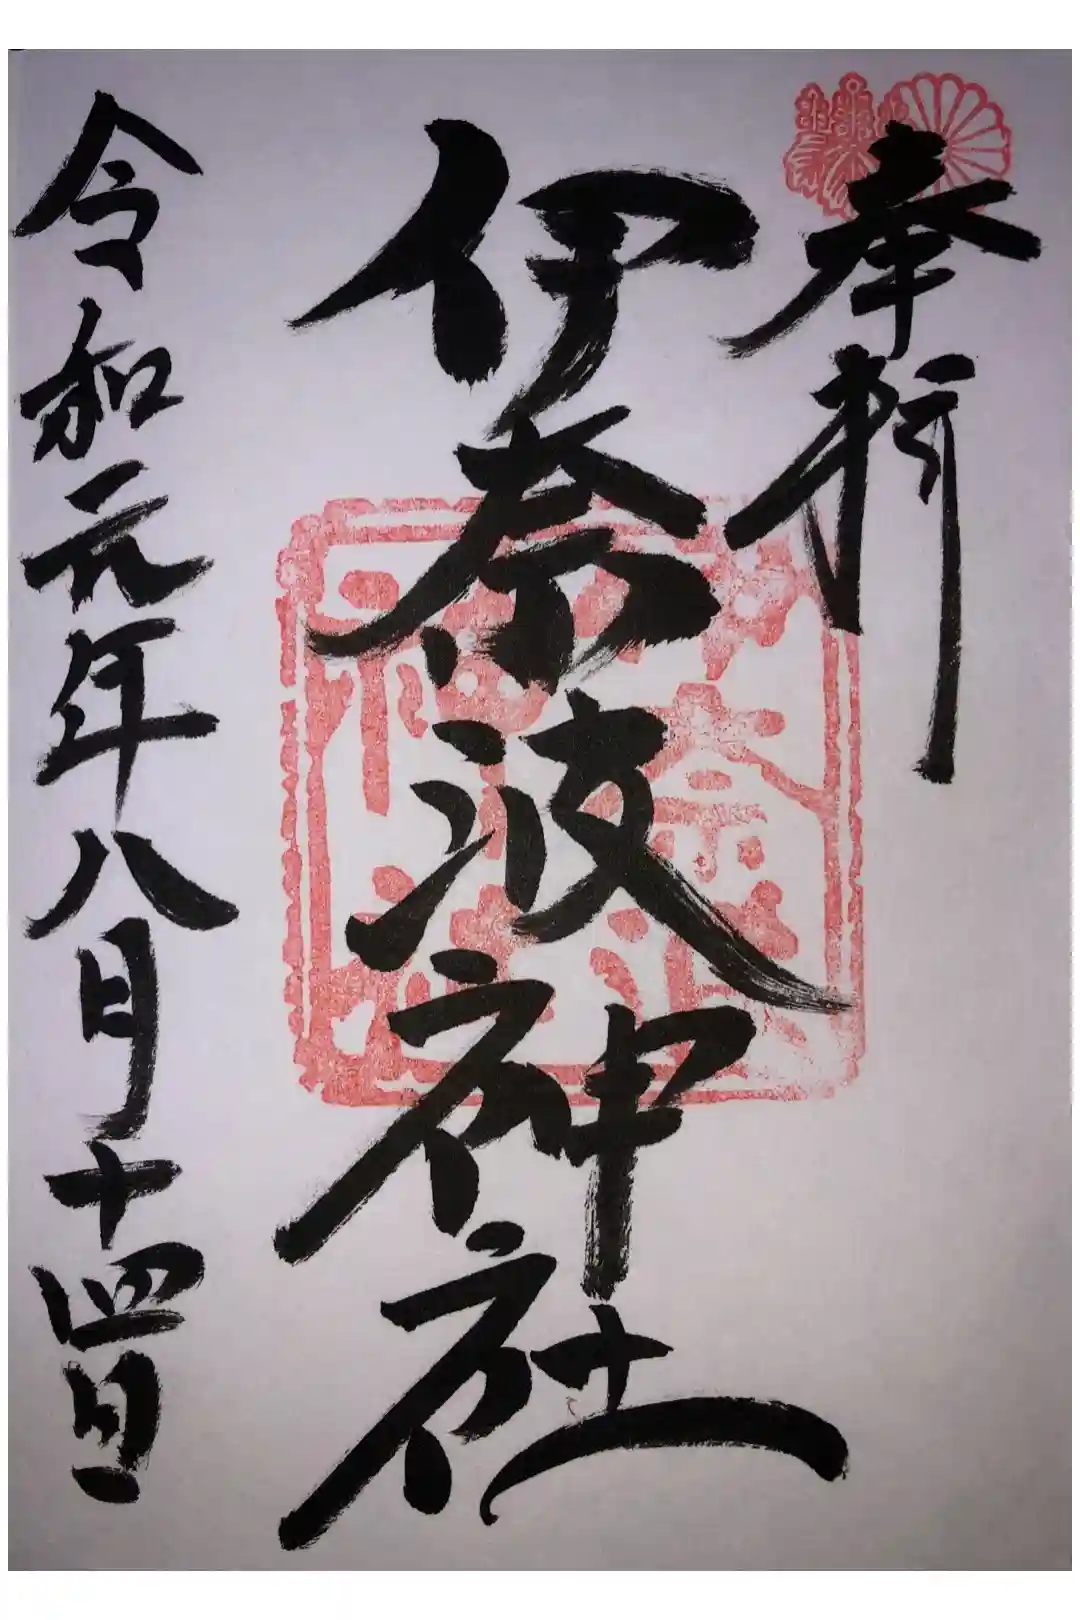 奉拝
伊奈波神社
令和元年八月十四日